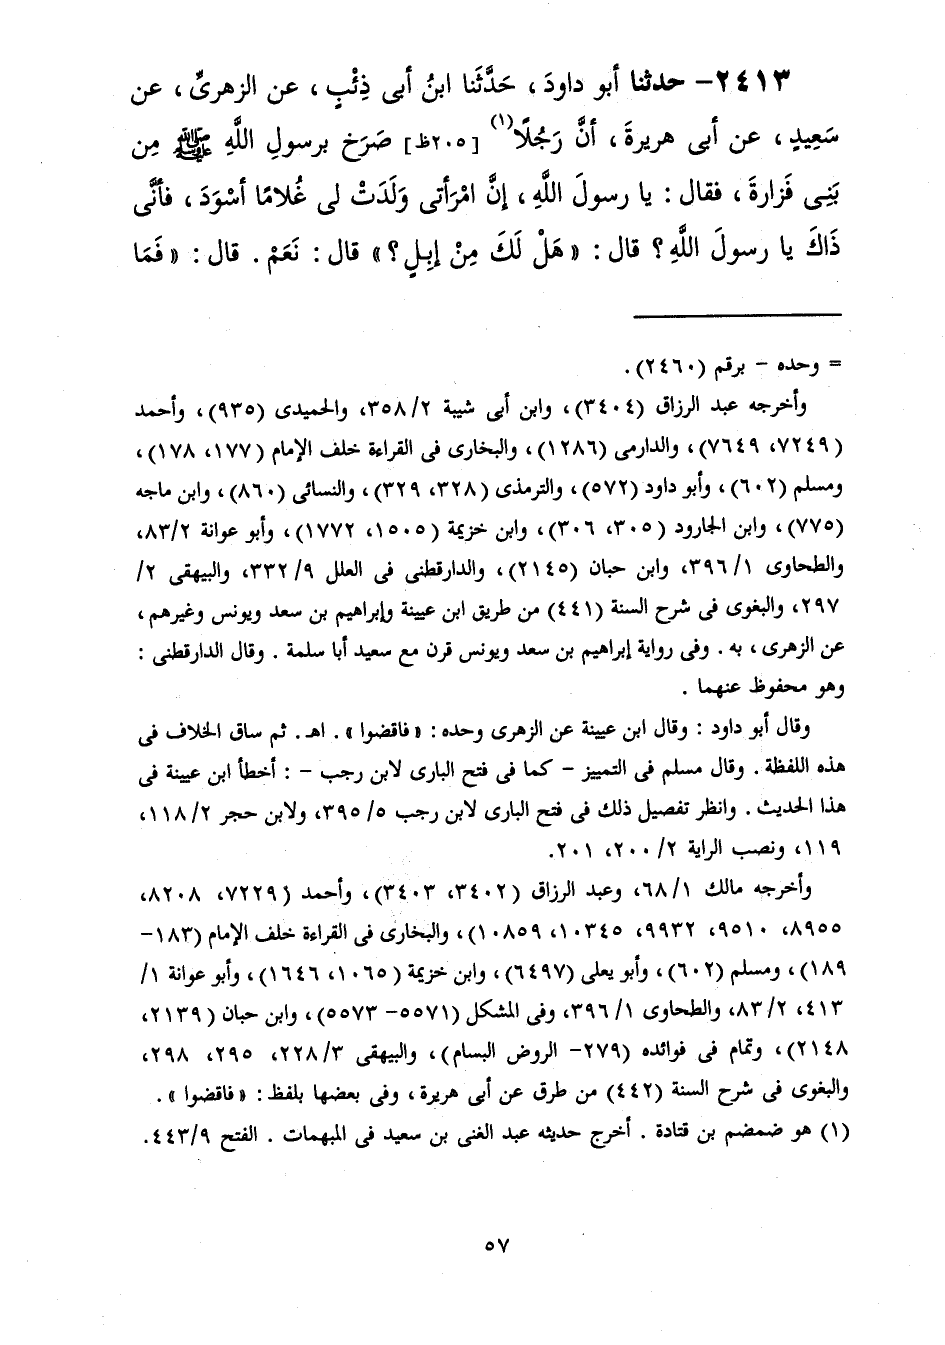 ٢٤١٣- حدثنا أبو داودَ ، حَدَّثَنا ابنُ أبى ذِئْبٍ ، عن الزهرىِّ ، عن
سَعِيدٍ ، عن أبى هريرةَ ، أنَّ رَجُلًا(١) [٢٠٥ظ] صَرَخ برسولِ اللَّهِ ﷺ مِن
بَنِى فَزارةَ ، فقال : يا رسولَ اللَّهِ ، إنَّ امْرَأتى وَلَدَتْ لى غُلامًا أسْوَدَ ، فأنَّى
ذَاكَ يا رسولَ اللَّهِ ؟ قال : « هَلْ لَكَ مِنْ إبِلٍ ؟ » قال : نَعَمْ . قال : « فَمَا
= وحده - برقم (٢٤٦٠) .
وأخرجه عبد الرزاق (٣٤٠٤)، وابن أبى شيبة ٣٥٨/٢، والحميدى (٩٣٥)، وأحمد
(٧٢٤٩، ٧٦٤٩)، والدارمى (١٢٨٦)، والبخارى فى القراءة خلف الإمام (١٧٧، ١٧٨)،
ومسلم (٦٠٢)، وأبو داود (٥٧٢)، والترمذى (٣٢٨، ٣٢٩)، والنسائى (٨٦٠)، وابن ماجه
(٧٧٥)، وابن الجارود (٣٠٥، ٣٠٦)، وابن خزيمة (١٥٠٥، ١٧٧٢)، وأبو عوانة ٨٣/٢،
والطحاوى ٣٩٦/١، وابن حبان (٢١٤٥)، والدارقطنى فى العلل ٣٣٢/٩، والبيهقى ٢/
٢٩٧، والبغوى فى شرح السنة (٤٤١) من طريق ابن عيينة وإبراهيم بن سعد ويونس وغيرهم ،
عن الزهرى ، به . وفى رواية إبراهيم بن سعد ويونس قرن مع سعيد أبا سلمة . وقال الدارقطنى :
وهو محفوظ عنهما .
وقال أبو داود : وقال ابن عيينة عن الزهرى وحده : « فاقضوا » . اهـ . ثم ساق الخلاف فى
هذه اللفظة . وقال مسلم فى التمييز - كما فى فتح البارى لابن رجب - : أخطأ ابن عيينة فى
هذا الحديث . وانظر تفصيل ذلك فى فتح البارى لابن رجب ٣٩٥/٥، ولابن حجر ١١٨/٢،
١١٩، ونصب الراية ٢٠٠/٢، ٢٠١.
وأخرجه مالك ٦٨/١، وعبد الرزاق (٣٤٠٢، ٣٤٠٣)، وأحمد (٧٢٢٩، ٨٢٠٨،
٨٩٥٥، ٩٥١٠، ٩٩٣٢، ١٠٣٤٥، ١٠٨٥٩)، والبخارى فى القراءة خلف الإمام (١٨٣-
١٨٩)، ومسلم (٦٠٢)، وأبو يعلى (٦٤٩٧)، وابن خزيمة (١٠٦٥، ١٦٤٦)، وأبو عوانة ١/
٤١٣، ٨٣/٢، والطحاوى ٣٩٦/١، وفى المشكل (٥٥٧١- ٥٥٧٣)، وابن حبان (٢١٣٩،
٢١٤٨)، وتمام فى فوائده (٢٧٩- الروض البسام)، والبيهقى ٢٢٨/٣، ٢٩٥، ٢٩٨،
والبغوى فى شرح السنة (٤٤٢) من طرق عن أبى هريرة ، وفى بعضها بلفظ : « فاقضوا » .
(١) هو ضمضم بن قتادة . أخرج حديثه عبد الغنى بن سعيد فى المبهمات . الفتح ٤٤٣/٩.
٥٧